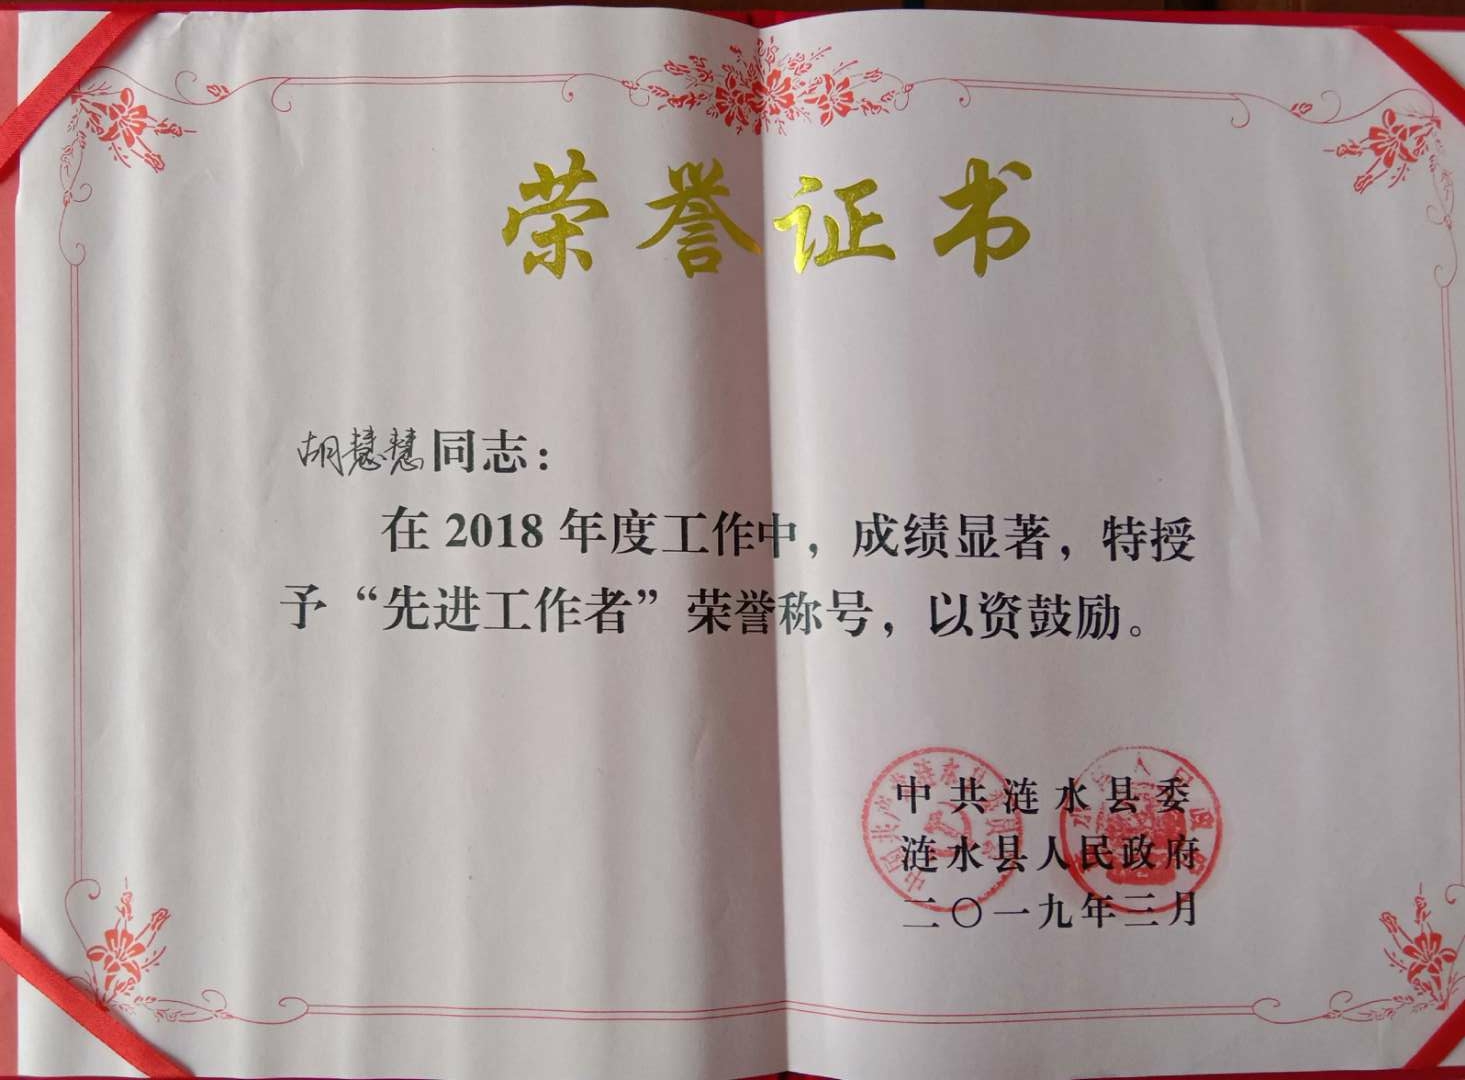 荣誉证书
胡慧慧同志：
在 2018 年度工作中，成绩显著，特授
予“先进工作者”荣誉称号，以资鼓励。
中共涟水县委
涟水县人民政府
二〇一九年三月